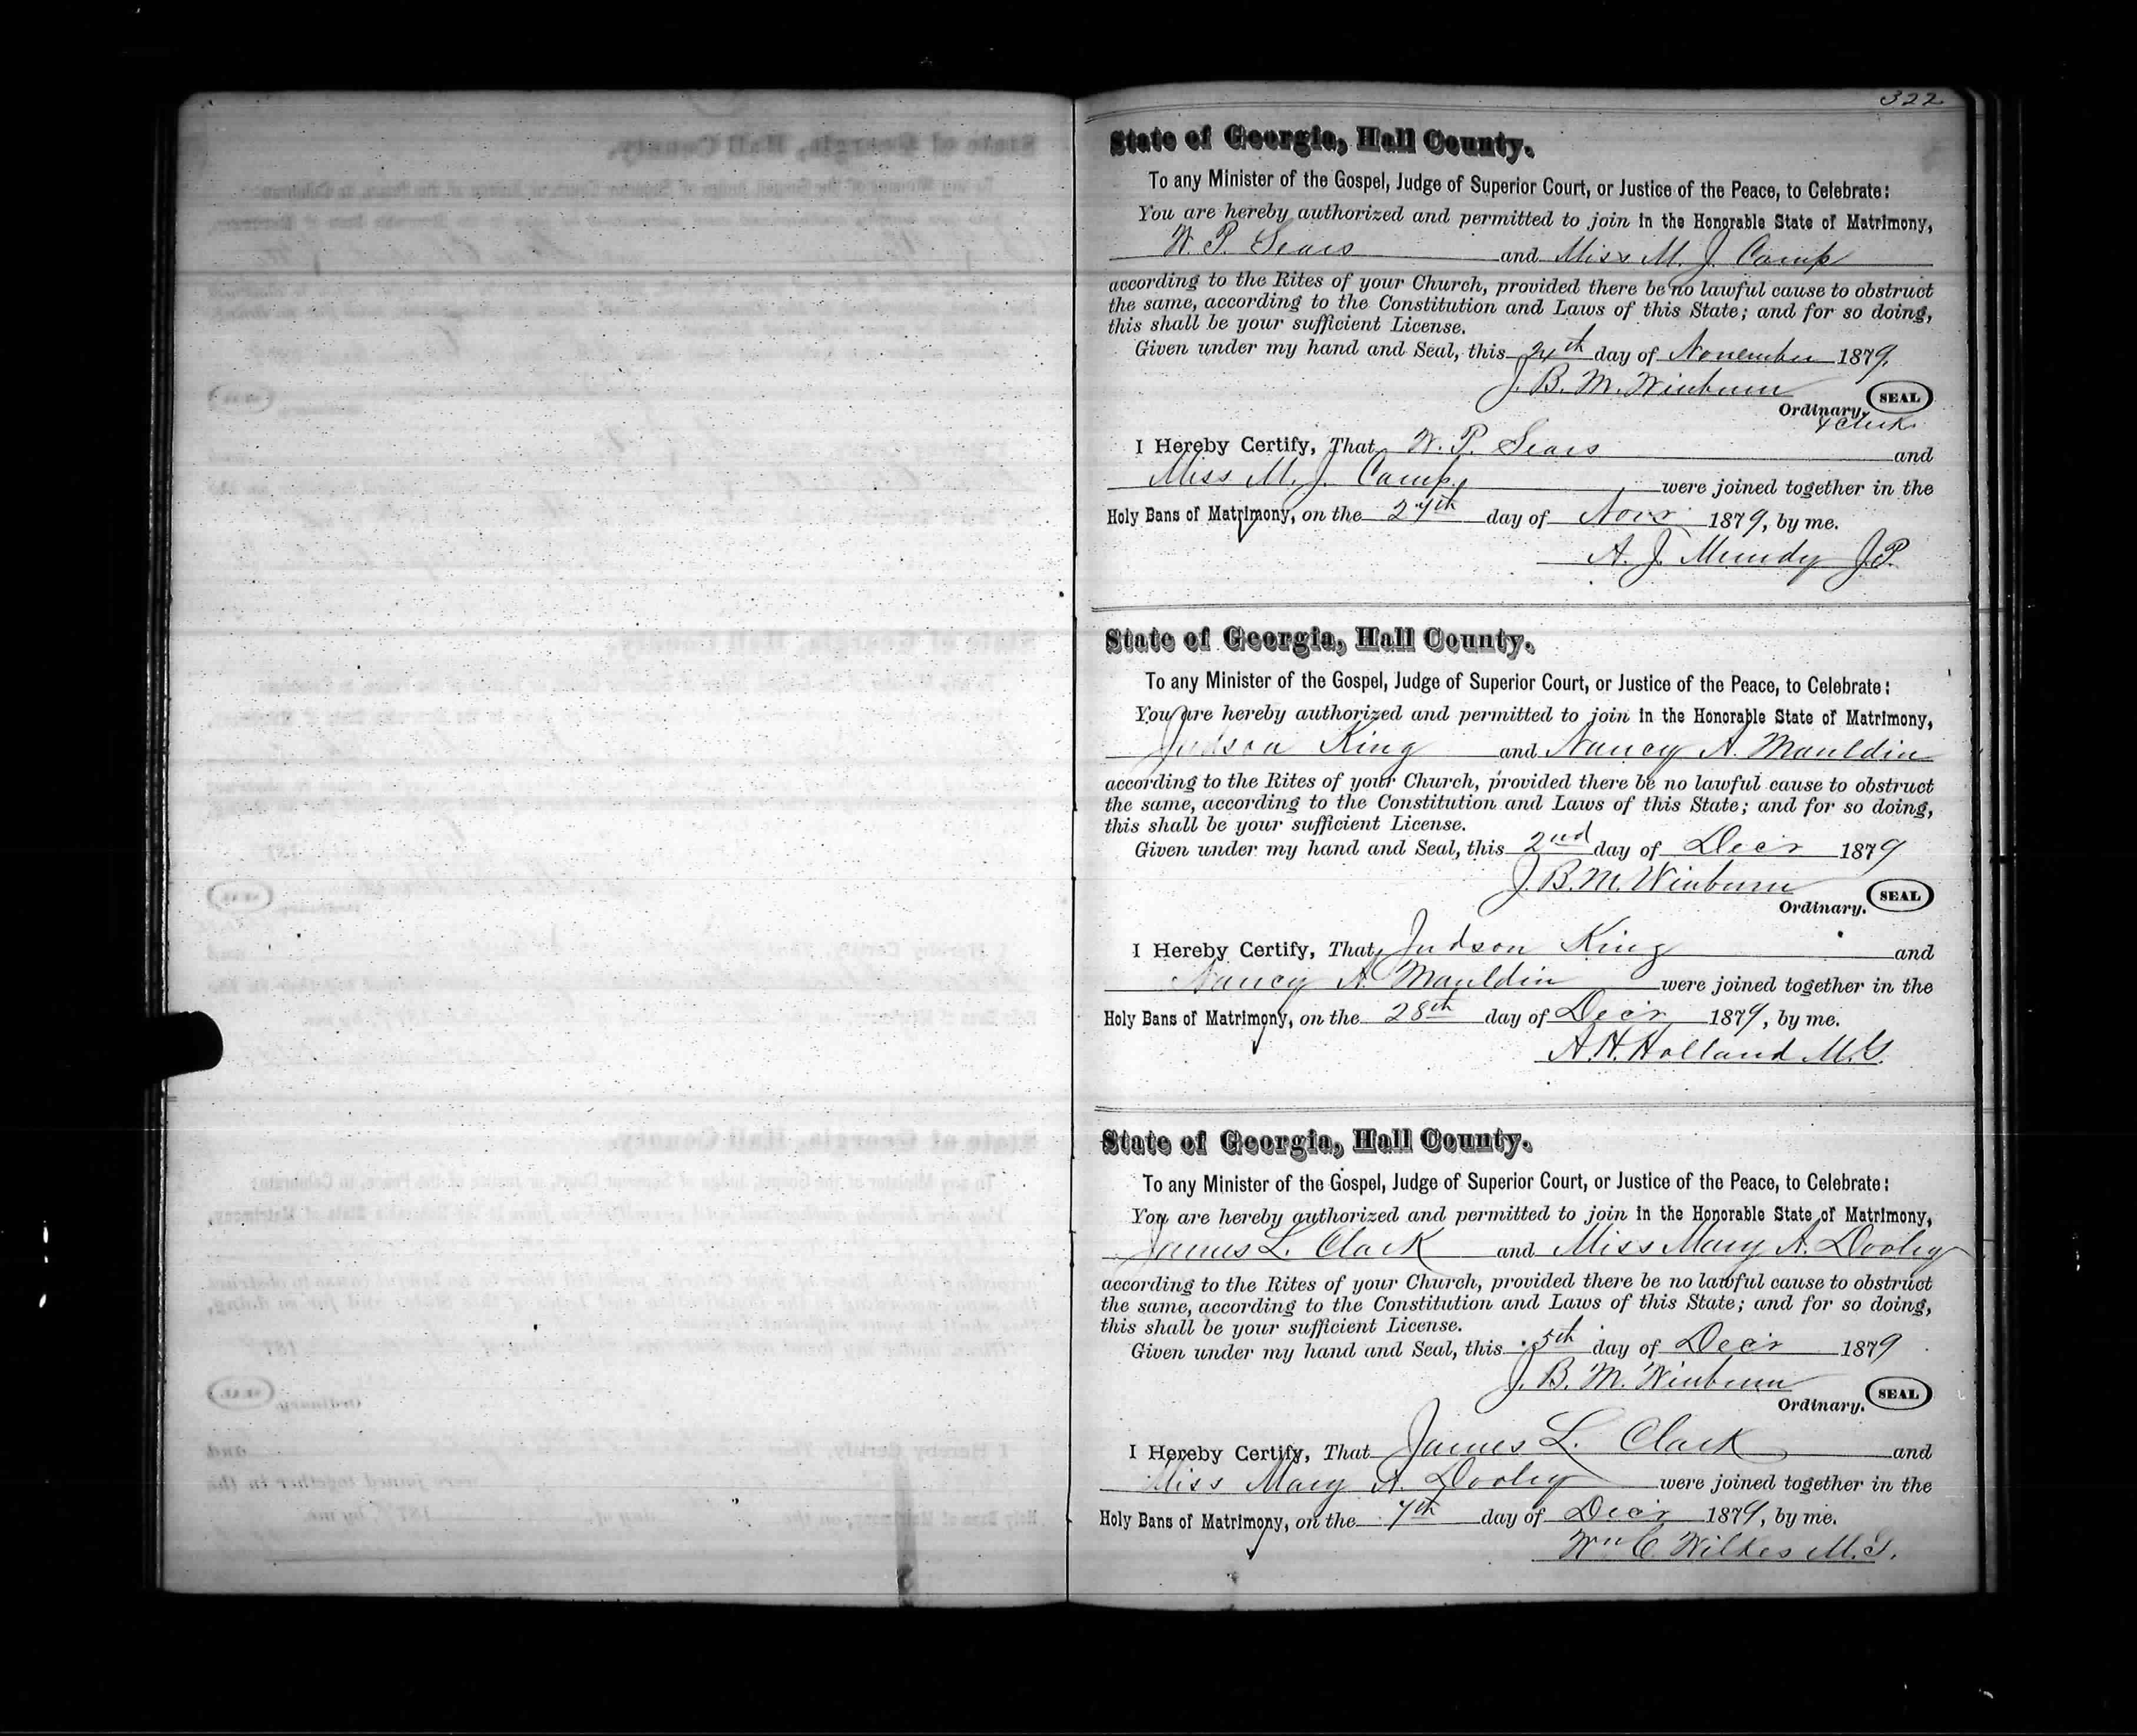 322
State of Georgia, Hall County.
To any Minister of the Gospel, Judge of Superior Court, or Justice of the Peace, to Celebrate:
You are hereby authorized and permitted to join in the Honorable State of Matrimony,
W. P. Sears and Miss M. J. Camp
according to the Rites of your Church, provided there be no lawful cause to obstruct
the same, according to the Constitution and Laws of this State; and for so doing,
this shall be your sufficient License.
Given under my hand and Seal, this day of November 1879.
J. B. M. Winburn SEAL
Ordinary.
& Clerk
I Hereby Certify, That W. P. Sears and
Miss M. J. Camp were joined together in the
Holy Bans of Matrimony, on the 27th day of Novr 1879, by me.
A. J. Mundy J.P.
State of Georgia, Hall County.
To any Minister of the Gospel, Judge of Superior Court, or Justice of the Peace, to Celebrate:
You are hereby authorized and permitted to join in the Honorable State of Matrimony,
Judson King and Nancy A. Mauldin
according to the Rites of your Church, provided there be no lawful cause to obstruct
the same, according to the Constitution and Laws of this State; and for so doing,
this shall be your sufficient License.
Given under my hand and Seal, this 2nd day of Decr 1879
J. B. M. Winburn SEAL
Ordinary.
I Hereby Certify, That Judson King and
Nancy A. Mauldin were joined together in the
Holy Bans of Matrimony, on the 28th day of Decr 1879, by me.
A. H. Holland M.G.
State of Georgia, Hall County.
To any Minister of the Gospel, Judge of Superior Court, or Justice of the Peace, to Celebrate:
You are hereby authorized and permitted to join in the Honorable State of Matrimony,
James L. Clark and Miss Mary A. Dooley
according to the Rites of your Church, provided there be no lawful cause to obstruct
the same, according to the Constitution and Laws of this State; and for so doing,
this shall be your sufficient License.
Given under my hand and Seal, this 5th day of Decr 1879
J. B. M. Winburn SEAL
Ordinary.
I Hereby Certify, That James L. Clark and
Miss Mary A. Dooley were joined together in the
Holy Bans of Matrimony, on the 7th day of Decr 1879, by me.
Wm C. Wilkes M.G.